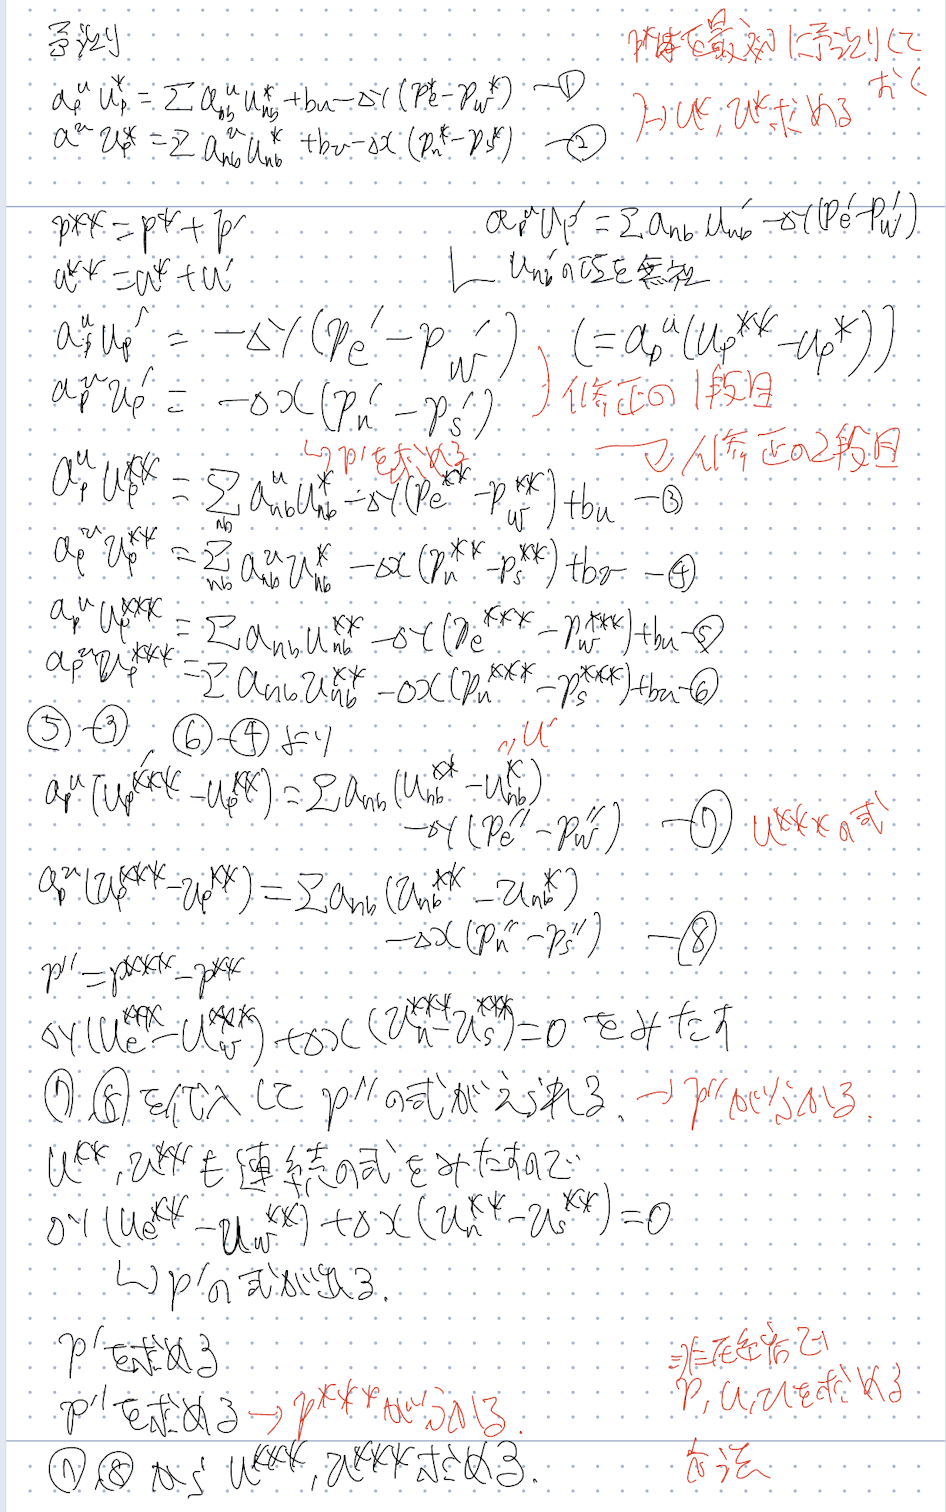 予測
p*は最初に予測して
おく
a_p^u u_p^* = Σ a_nb^u u_nb^* + bu - Δy (p_e^* - p_w^*) —①
a^v v_p^* = Σ a_nb^v v_nb^* + bv - Δx (p_n^* - p_s^*) —②
↳ u*, v*求める
p** = p* + p'
u** = u* + u'
a_p^u u_p' = Σ a_nb u_nb' - Δy(p_e' - p_w')
u_nb'の項を無視
a_p^u u_p' = -Δy (p_e' - p_w') (= a_p^u (u_p^** - u_p^*))
a_p^v v_p' = -Δx (p_n' - p_s')
)修正の1段目
↳ p'を求める
→ 修正の2段目
a_p^u u_p^** = Σ_nb a_nb^u u_nb^* - Δy (p_e^** - p_w^**) + bu —③
a_p^v v_p^** = Σ_nb a_nb^v v_nb^* - Δx (p_n^** - p_s^**) + bv —④
a_p^u u_p^*** = Σ a_nb u_nb^** - Δy (p_e^*** - p_w^***) + bu —⑤
a_p^v v_p^*** = Σ a_nb v_nb^** - Δx (p_n^*** - p_s^***) + bu —⑥
⑤-③ ⑥-④より
"u'
a_p^u (u_p^*** - u_p^**) = Σ a_nb (u_nb^** - u_nb^*)
-Δy (p_e'' - p_w'') —⑦ u***の式
a_p^v (v_p^*** - v_p^**) = Σ a_nb (v_nb^** - v_nb^*)
-Δx (p_n'' - p_s'') —⑧
p'' = p*** - p**
Δy (u_e^*** - u_w^***) + Δx (v_n^*** - v_s^***) = 0 をみたす
⑦,⑧を代入して p''の式がえられる. → p''が分かる.
u**, v**も連続の式をみたすので
Δy (u_e^** - u_w^**) + Δx (v_n^** - v_s^**) = 0
↳ p'の式が出る.
p'を求める
p''を求める → p***が分かる.
⑦,⑧から u***, v***求める.
非圧縮で
p, u, vを求める
方法